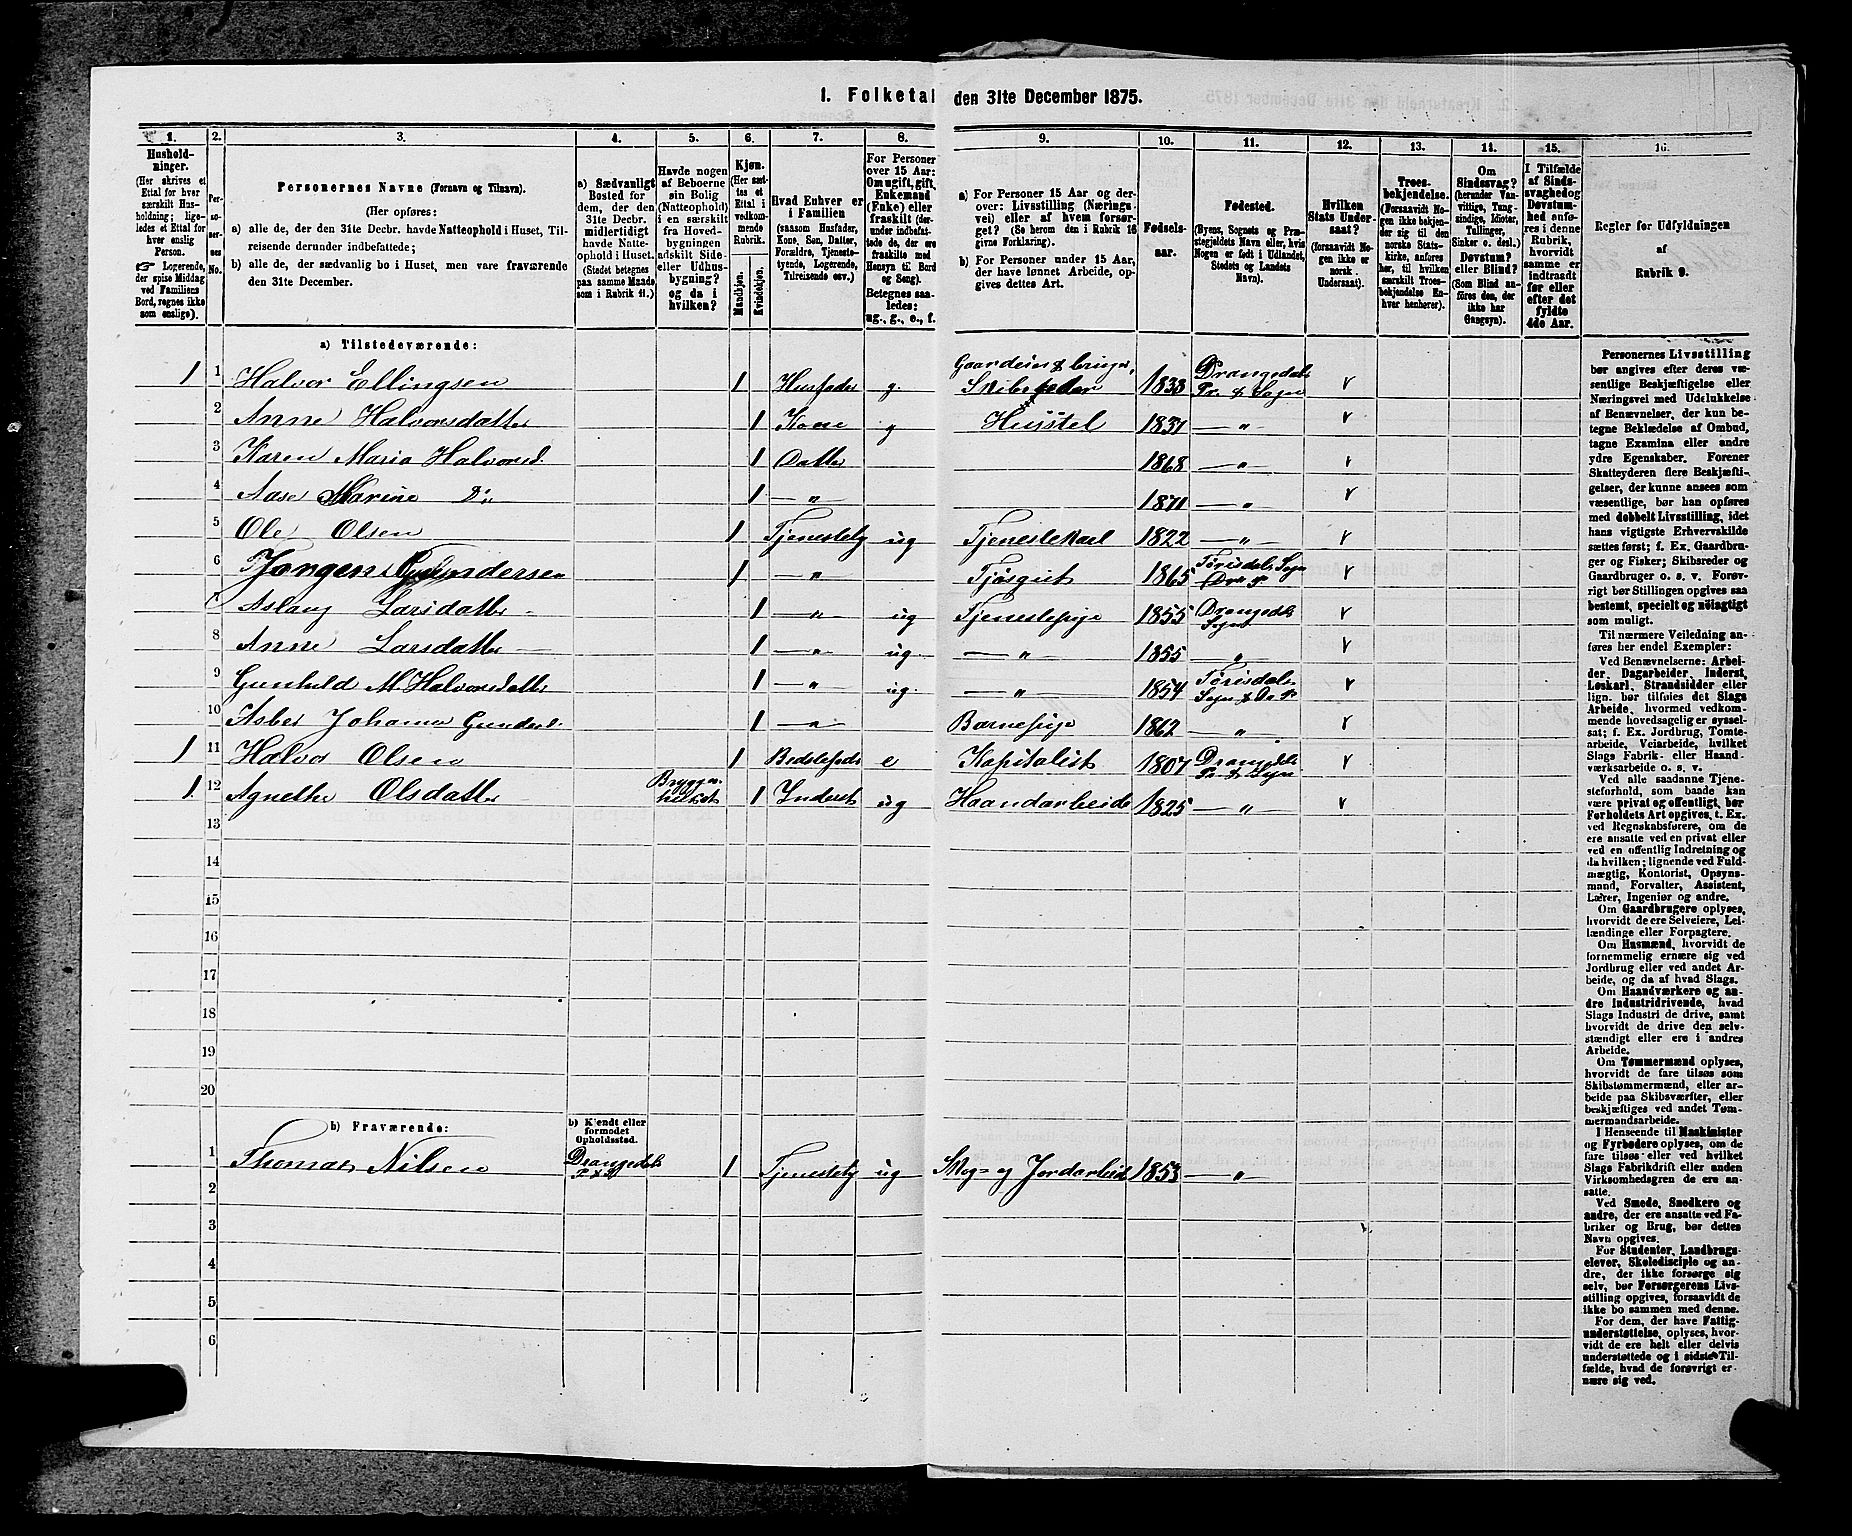 1. Folketal den 31te December 1875.
1. 2. 3. 4. 5. 6. 7. 8. 9. 10. 11. 12. 13. 14. 15. 16.
Husholdninger.
(Her skrives et
Ettal for hver
særskilt Husholdning;
ligeledes et Ettal for
hver enslig
Person.
☞ Logerende,
der spise Middag
ved Familiens
Bord, regnes ikke
som enslige).
Personernes No.
Personernes Navne (Fornavn og Tilnavn).
(Her opføres:
a) alle de, der den 31te Decbr. havde Natteophold i Huset, Tilreisende derunder indbefattede;
b) alle de, der sædvanlig bo i Huset, men vare fraværende
den 31te December.
a) Sædvanligt
Bosted for
dem, der den
31te Decbr.
midlertidigt
havde Natteophold i Huset.
(Stedet betegnes
paa samme Maade
som i Rubrik 11.)
Havde nogen
af Beboerne
sin Bolig
(Natteophold)
i en særskilt
fra Hovedbygningen
adskilt Side-
eller Udhusbygning?
og da i
hvilken?
Kjøn.
(Her sættes et
Ettal i
vedkommende
Rubrik.
Mandkjøn.
Kvindekjøn.
Hvad Enhver er
i Familien
(saasom Husfader,
Kone, Søn, Datter,
Forældre, Tjenestetyende, Logerende,
Tilreisende osv.)
For Personer
over 15 Aar:
Om ugift, gift,
Enkemand
(Enke) eller
fraskilt (derunder indbefattede de, der ere
fraskilte med
Hensyn til Bord
og Seng).
Betegnes saaledes:
ug., g., e., f.
a) For Personer 15 Aar og derover: Livsstilling (Næringsvei) eller af hvem forsørget? (Se herom den i Rubrik 16
givne Forklaring).
b) For Personer under 15 Aar,
der have lønnet Arbeide, opgives dettes Art.
Fødselsaar.
Fødested.
(Byens, Sognets og Præstegjeldets Navn eller, hvis
Nogen er født i Udlandet,
Stedets og Landets
Navn).
Hvilken
Stats Undersaat?
(forsaavidt Nogen ikke er
norsk
Undersaat).
Troesbekjendelse.
(Forsaavidt Nogen ikke bekjender sig til den
norske Statskirke, anføres
her, til hvilken
særskilt Troesbekjendelse Enhver henhører).
Om
Sindssvag?
(herunder Vanvittige, Tungsindige, Idioter,
Tullinger,
Sinker o. desl.)
Døvstum?
eller Blind?
(Som Blind anføres den, der
ikke har
Gangsyn).
I Tilfælde
af Sindssvaghed og
Døvstumhed anføres i denne
Rubrik,
hvorvidt
samme er
indtraadt
før eller
efter det
fyldte
4de Aar.
Regler for Udfyldningen
af
Rubrik 9.
a) Tilstedeværende:
1 1 Halvor Ellingsen 1 Husfader g. Gaardeier & bruger, Skibsreder 1833 Drangedals Pr. & Sogn v
2 Anne Halvorsdatter 1 Kone g Husstel 1837 — " v
3 Karen Maria Halvorsd. 1 Datter 1868 — " v
4 Aase Karine Do 1 — " 1871 — " v
5 Ole Olsen 1 Tjenestety ug Tjenestekarl 1822 — " v
6 Jørgen Gundersen 1 — " Gjøsgut 1865 Tørisdals Sogn Dr. P. v
7 Aslaug Larsdatter 1 — " ug Tjenestepige 1855 Drangedals Sogn v
8 Anne Larsdatter 1 — " ug. — " 1855 — " v
9 Gunhild M. Halvorsdatter 1 — " ug. — " 1854 Tørisdals Sogn & Dr. P. v
10 Asber Johanne Gundersd. 1 — " Barnepige 1862 — " v
1 11 Halvor Olsen 1 Bedstefader e Kapitalist 1807 Drangedals Pr. & Sogn v
1. 12 Agnethe Olsdatter Bryggerhuset 1 Inderst ug Haandarbeide 1825 — " v
13
14
15
16
17
18
19
20
b) Fraværende:
b) Kjendt eller
formodet
Opholdssted.
1 Thomas Nilsen Drangedals P. & S. 1 Tjenestety ug Skog- og Jordarbeide 1853 — "
2
3
4
5
6
Personernes Livsstilling
bør angives efter deres væsentlige Beskjæftigelse eller
Næringsvei med Udelukkelse
af Benævnelser, der kun betegne Beklædelse af Ombud,
tagne Examina eller andre
ydre Egenskaber. Forener
Skatteyderen flere Beskjæftigelser, der kunne ansees som
væsentlige, bør han opføres
med dobbelt Livsstilling, idet
hans vigtigste Erhvervskilde
sættes først; f. Ex. Gaardbruger og Fisker; Skibsreder og
Gaardbruger o. s. v. Forøvrigt bør Stillingen opgives saa
bestemt, specielt og nøiagtigt
som muligt.
Til nærmere Veiledning anføres her endel Exempler:
Ved Benævnelserne: Arbeider, Dagarbeider, Inderst,
Løskarl, Strandsidder eller
lign. bør tilføies det Slags
Arbeide, hvormed vedkommende hovedsagelig er sysselsat; f. Ex. Jordbrug, Tomtearbeide, Veiarbeide, hvilket
Slags Fabrik- eller Haandværksarbeide o. s. v.
Ved alle saadanne Tjenesteforhold, som baade kan
være privat og offentligt, bør
Forholdets Art opgives, t. Ex.
ved Regnskabsførere, om de
ere ansatte ved en privat eller
ved en offentlig Indretning og
da hvilken; lignende ved Fuldmægtig, Kontorist, Opsynsmand, Forvalter, Assistent,
Lærer, Ingeniør og andre.
Om Gaardbrugere oplyses,
hvorvidt de ere Selveiere, Leilændinge eller Forpagtere.
Om Husmænd, hvorvidt de
fornemmelig ernære sig ved
Jordbrug eller ved andet Arbeide, og da af hvad Slags.
Om Haandværkere og andre Industridrivende, hvad
Slags Industri de drive, samt
hvorvidt de drive den selvstændigt eller ere i andres
Arbeide.
Om Tømmermænd oplyses,
hvorvidt de fare tilsøs som
Skibstømmermænd, eller arbeide paa Skibsværfter, eller
beskjæftiges ved andet Tømmermandsarbeide.
I Henseende til Maskinister
og Fyrbødere oplyses, om de
fare tilsøs eller ved hvilket
Slags Fabrikdrift eller anden
Virksomhedsgren de ere ansatte.
Ved Smede, Snedkere og
andre, der ere ansatte ved Fabriker og Brug, bør dettes
Navn opgives.
For Studenter, Landbrugselever, Skoledisciple og andre, der ikke forsørge sig
selv, bør Forsørgerens Livsstilling opgives, forsaavidt de
ikke bo sammen med denne.
For dem, der have Fattigunderstøttelse, oplyses, hvorvidt de ere helt eller delvis
understøttede og i sidste Tilfælde, hvad de forøvrigt ernære sig ved.